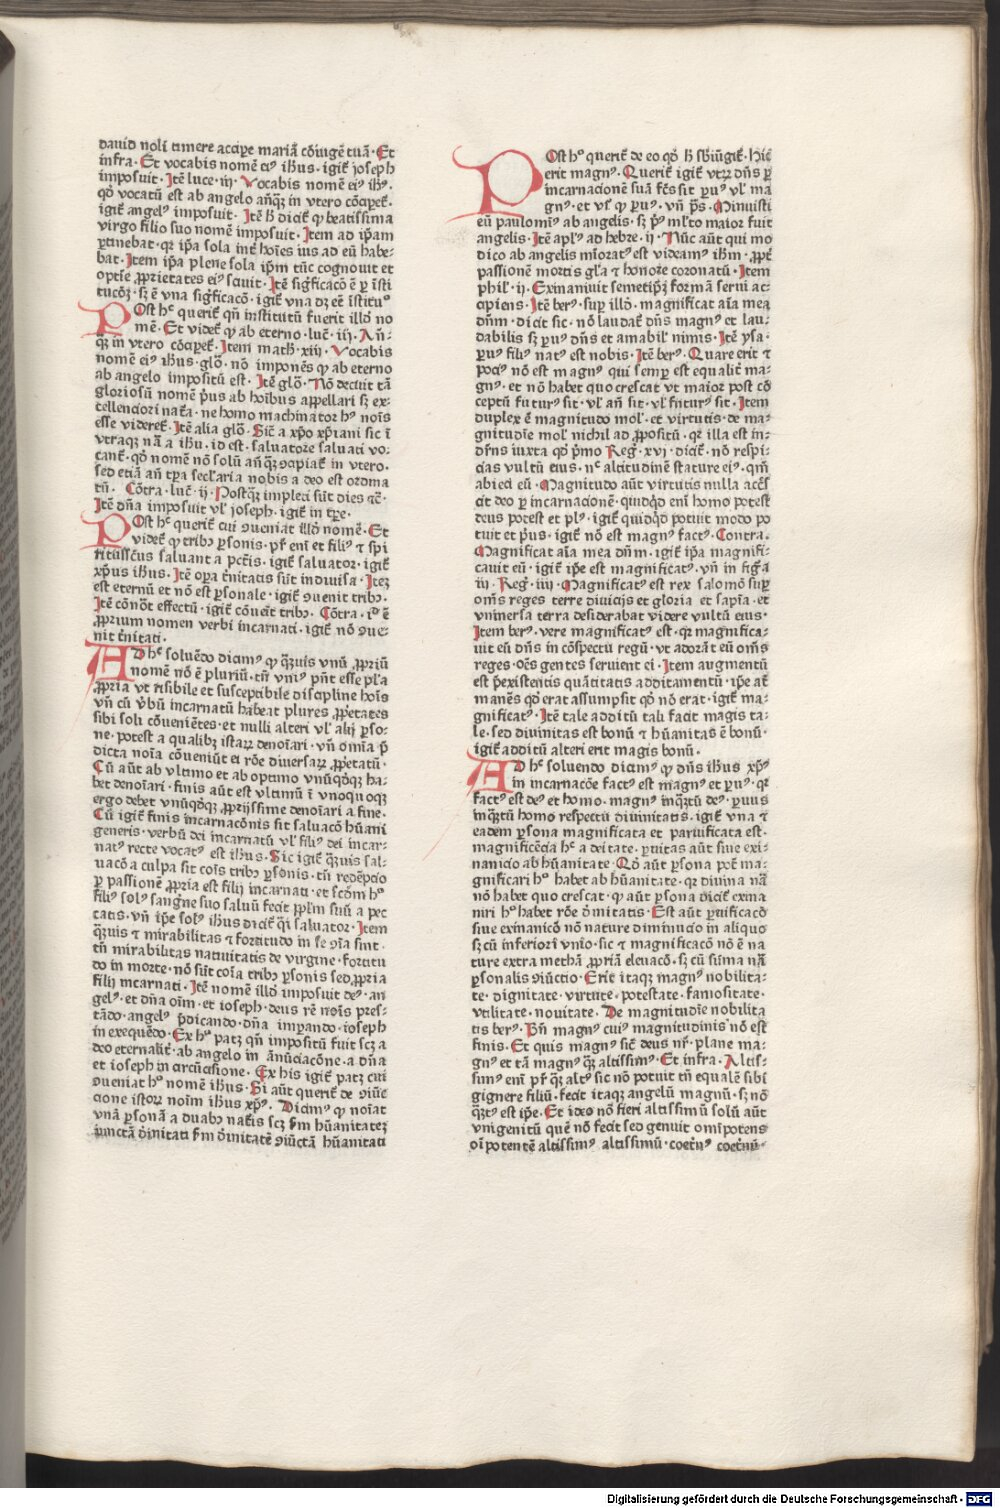 dauid noli timere accipe mariā cōiugē tuā. Et
infra. Et vocabis nomē eiꝰ ihus. igiť ioseph
imposuit. Itē luce. iij. Vocabis nomē eiꝰ ihs.
qd̄ vocatū est ab angelo anq̄ȝ in vtero cōcipeť.
igiť angelꝰ imposuit. Itē h̄ diciť ꝙ beatissima
virgo filio suo nomē imposuit. Item ad ip̄am
ꝑtinebat. qr ip̄a sola int̄ hoīes ius ad eū habe-
bat. Item ip̄a plene sola ip̄m tūc cognouit et
optīe ꝓprietates eiꝰ sciuit. Itē significacō ē ꝑ īsti
tucōȝ. sȝ ē vna significacō. igiť vna dȝ eē īstitutꝰ
POst hᶜ queriť qn̄ institutū fuerit illd̓ no
mē. Et videť ꝙ ab eterno. luc̄. iij. An̄-
q̄ȝ in vtero cōcipeť. Item math̄. xiij. Vocabis
nomē eiꝰ ihus. glo̓. nō imponēs ꝙ ab eterno
ab angelo impositū est. Itē glo̓. Nō decuit tā
gloriosū nomē pꝰus ab hoībus appellari sȝ ex-
cellenciori natᷓa. ne homo machinator hꝰ noīs
esse videreť. Itē alia glo̓. Sic̄ a xp̄o xp̄iani sic ī
vtraqȝ nāa ihu. id est. saluatore saluati vo-
canť. qd̓ nomē nō solū an̄ q̄ȝ ꝯcipiať in vtero.
sed etiā an̄ tp̄ra seclaria nobis a deo est ordina
tū. Cōtra. luc̄. ij. Postq̄ȝ impleti sūt dies ⁊c̄.
Itē dn̄a imposuit vl̓ ioseph. igiť in tp̄re.
POst hᶜ queriť cui ꝯueniat illd̓ nomē. Et
videť ꝙ tribꝰ ꝑsonis. pr̄ eni et filiꝰ ⁊ spi
ritussctūs saluant a pctīs. igiť saluator. igiť
xp̄us ihus. Itē oꝑa tinitatis sūt indiuisa. Iteȝ
est eternū et nō est ꝑsonale. igiť ꝯuenit tribꝰ.
Itē cōnōt effectū. igiť cōueīt tribꝰ. Cōtra. id̓ ē
ꝓprium nomen verbi incarnati. igiť nō ꝯue-
nit tinitati.
AD hᶜ soluēdo diamꝰ ꝙ q̄ȝuis vnū ꝓpriū
nomē nō ē pluriū. tn̄ vniꝰ pn̄t esse pl̓a
ꝓpria vt risibile et susceptibile discipline hoīs
vn̄ cū vbū incarnatū habeat plures ꝓpetates
sibi soli cōueniētes. et nulli alteri vl̓ alij ꝑso-
ne. potest a qualibȝ istaꝝ denoīari. vn̄ om̄ia p̄
dicta noīa cōueniūt ei rōe diuersaꝝ ꝓpetatū.
Cū aūt ab vltimo et ab optimo vnūqd̓qȝ ha-
bet denoīari. finis aūt est vltimū ī vnoquoqȝ
ergo debet vnūqd̓qȝ ꝓprijssime denoīari a fine.
Cū igiť finis incarnacōnis sit saluacō hūani
generis. verbū dei incarnatū vl̓ filiꝰ dei incar-
natꝰ recte vocatꝰ est ihus. Sic igiť q̄ȝuis sal-
uacō a culpa sit coīs tribꝰ ꝑsonis. tn̄ redēpcio
ꝑ passionē ꝓpria est filij incarnati. et scdm̄ hº
filiꝰ solꝰ sangne suo saluū fecit pplm̄ suū a pec
catis. vn̄ ip̄e solꝰ ihus diciť q̄i saluator. Item
q̄ȝuis ⁊ mirabilitas ⁊ fortitudo in se oīa sint.
tn̄ mirabilitas natiuitatis de virgine. fortitu
do in morte. nō sūt coīa tribꝰ ꝑsonis sed ꝓpria
filij incarnati. Itē nomē illd̓ imposuit deꝰ. an
gelꝰ. et dn̄a oīm. et ioseph. deus rē noīs pres-
tādo. angelꝰ p̄dicando. dn̄a impando. ioseph
in exequēdo. Ex hº patȝ qn̄ impositū fuit scȝ a
deo eternalit̓. ab angelo in ānūciacōne. a dn̄a
et ioseph in circūcisione. Ex his igiť patȝ cui
ꝯueniat hº nomē ihus. Si aūt queriť de ꝯiūc̄
cione istoꝝ noīm ihus xp̄ꝰ. Diamꝰ ꝙ noīat
vnā ꝑsonā a duabꝰ natis scȝ fm̄ hūanitateȝ
iunctā diuinitati fm̄ diuinitatē ꝯiūctā hūanitati
POst hº queriť de eo qd̓ h̄ sbiūgiť. Hic̄
erit magnꝰ. Queriť igiť vtꝝ dn̄s ꝑ
incarnacionē suā fcūs sit puꝰ vl̓ ma
gnꝰ. et vr̄ ꝙ puꝰ. vn̄ ps̄. Minuisti
eū paulominꝰ ab angelis. sȝ pꝰ ml̓to maior fuit
angelis. Itē apl̓us ad hebre. ij. Nūc aūt qui mo
dico ab angelis mīoratꝰ est videamꝰ ihm. ꝓpt̄
passionē mortis gl̓a ⁊ honore coronatū. Item
phil̓. ij. Exinaniuit semetip̄ȝ formā serui ac-
cipiens. Itē berꝰ. suꝑ illd̓. magnificat aīa mea
dn̄m. dicit sic. nō laudať dn̄s magnꝰ et lau-
dabilis sȝ puꝰ dn̄s et amabil̓ nimis. Itē ysa.
puꝰ filiꝰ natꝰ est nobis. Itē berꝰ. Quare erit ⁊
pociꝰ nō est magnꝰ qui semꝑ est equalit̄ ma-
gnꝰ. et nō habet quo crescat vt maior post cō
ceptū futurꝰ sit. vl̓ an̄ sit. vl̓ futurꝰ sit. Item
duplex ē magnitudo mol̓. et virtutis. de ma-
gnitudīe mol̓ nichil ad ꝓpositū. qr illa est in-
dr̄ns iuxta qd̓ pꝰmo Reg̓. xvi. diciť. nō respi-
cias vultū eius. nᶜ altitudinē stature eiꝰ. qm̄
abieci eū. Magnitudo aūt virtutis nulla accꝰ
cit deo ꝑ incarnacionē. quidqd̓ eni homo potest
deus potest et plꝰ. igiť quidqd̓ potuit modo po
tuit et pꝰus. igiť nō est magnꝰ factꝰ. Contra.
Magnificat aīa mea dn̄m. igiť ip̄a magnifi-
cauit eū. igiť ip̄e est magnificatꝰ. vn̄ in figᷓa
iij. Reg̓. iiij. Magnificatꝰ est rex salomō suꝑ
om̄s reges terre diuicijs et gloria et sapīa. et
vniuersa terra desiderabat videre vultū eius.
Item berꝰ. vere magnificatꝰ est. qr magnifica-
uit eū dn̄s in cōspectu regū. vt adorāt eū om̄s
reges. oēs gentes seruient ei. Item augmentū
est p̄existentis quātitatis additamentū. ip̄e aūt
manēs qd̓ erat assumpsit qd̓ nō erat. igiť ma-
gnificatꝰ. Itē tale additū tali facit magis ta-
le. sed diuinitas est bonū ⁊ hūanitas ē bonū.
igiť additū alteri erit magis bonū.
AD hᶜ soluendo diamꝰ ꝙ dn̄s ihus xp̄ꝰ
in incarnacōe factꝰ est magnꝰ et puꝰ. qr
factꝰ est deꝰ et homo. magnꝰ inq̄ȝtū deꝰ. puus
inq̄ȝtū homo respectu diuinitatis. igiť vna ⁊
eadem ꝑsona magnificata et paruificata est.
magnificēcia hᶜ a deitate. puitas aūt siue exi-
nanicio ab hūanitate. Qd̓ aūt ꝑsona pot̄ ma-
gnificari hº habet ab hūanitate. qr diuina nāa
nō habet quo crescat. ꝙ aūt ꝑsona diciť exina
niri hº habet rōe diuinitatis. Est aūt puificacō
siue exinanicō nō nature diminucio in aliquo
sȝ cū inferiori vnio. sic ⁊ magnificacō nō ē na
ture extra methā ꝓpriā eleuacō. sȝ cū sūma nāa
ꝑsonalis ꝯiūctio. Erit̄ itaqȝ magnꝰ nobilita-
te. dignitate. virtute. potestate. famositate.
vtilitate. nouitate. De magnitudīe nobilita
tis berꝰ. Bn̄ magnꝰ cuiꝰ magnitudinis nō est
finis. Et quis magnꝰ sic̄ deus nr̄. plane ma-
gnꝰ et tā magnꝰ q̄ȝ altissimꝰ. Et infra. Altis-
simꝰ eni pr̄ q̄ȝ altꝰ sic nō potuit tn̄ equalē sibi
gignere filiū. fecit itaqȝ angelū magnū. sȝ nō
q̄ȝtꝰ est ip̄e. Et ideo nō fieri altissimū solū aūt
vnigenitū quē nō fecit sed genuit omīpotens
oīpotentē altissimꝰ altissimū. coet̄nꝰ coet̄nū.
Digitalisierung gefördert durch die Deutsche Forschungsgemeinschaft - DFG